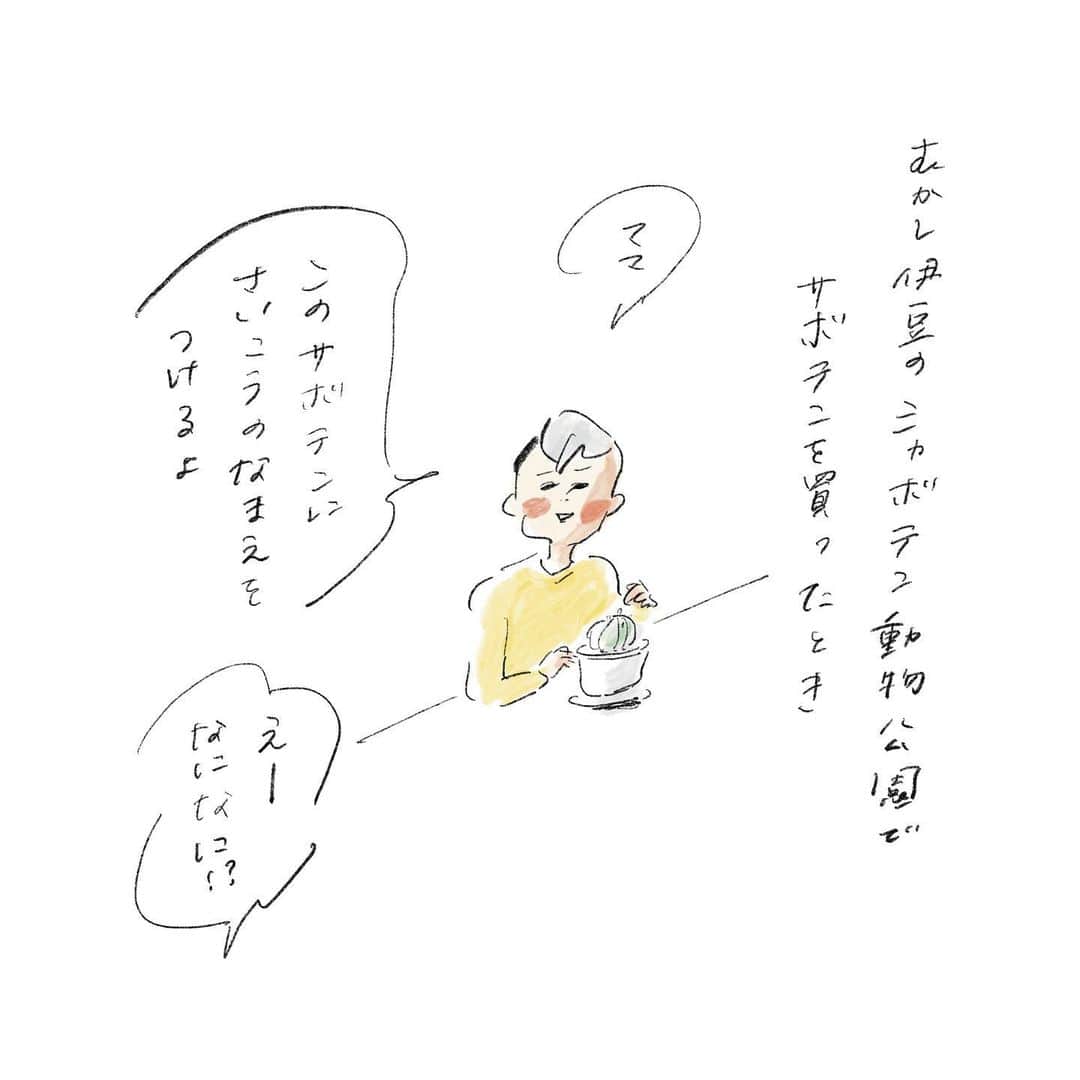 むかし伊豆のシャボテン動物公園で
サボテンを買ったとき
ママ
このサボテンに
さいこうのなまえを
つけるよ
えー
なになに!?